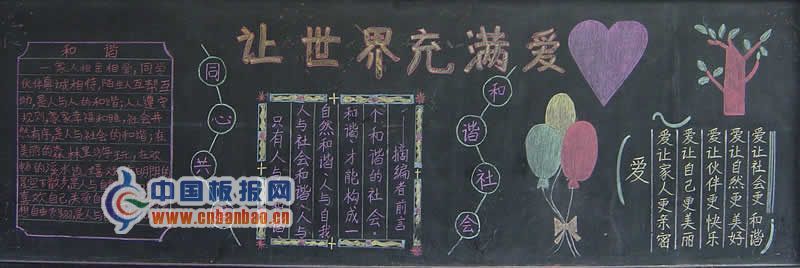 让世界充满爱
和谐
一家人相亲相爱,同学
伙伴真诚相待,陌生人互帮互
助,是人与人的和谐;人人遵守
规则,家家幸福和睦,社会井
然有序,是人与社会的和谐;在
美丽的森林里
同心共
只有人与
人与社会和谐、人与
自然和谐、人与自我
和谐,才能构成一
个和谐的社会。
——摘编者前言
和谐社会
爱
爱让家人更亲密
爱让自己更美丽
爱让伙伴更快乐
爱让自然更美好
爱让社会更和谐
中国板报网
www.cnbanbao.cn